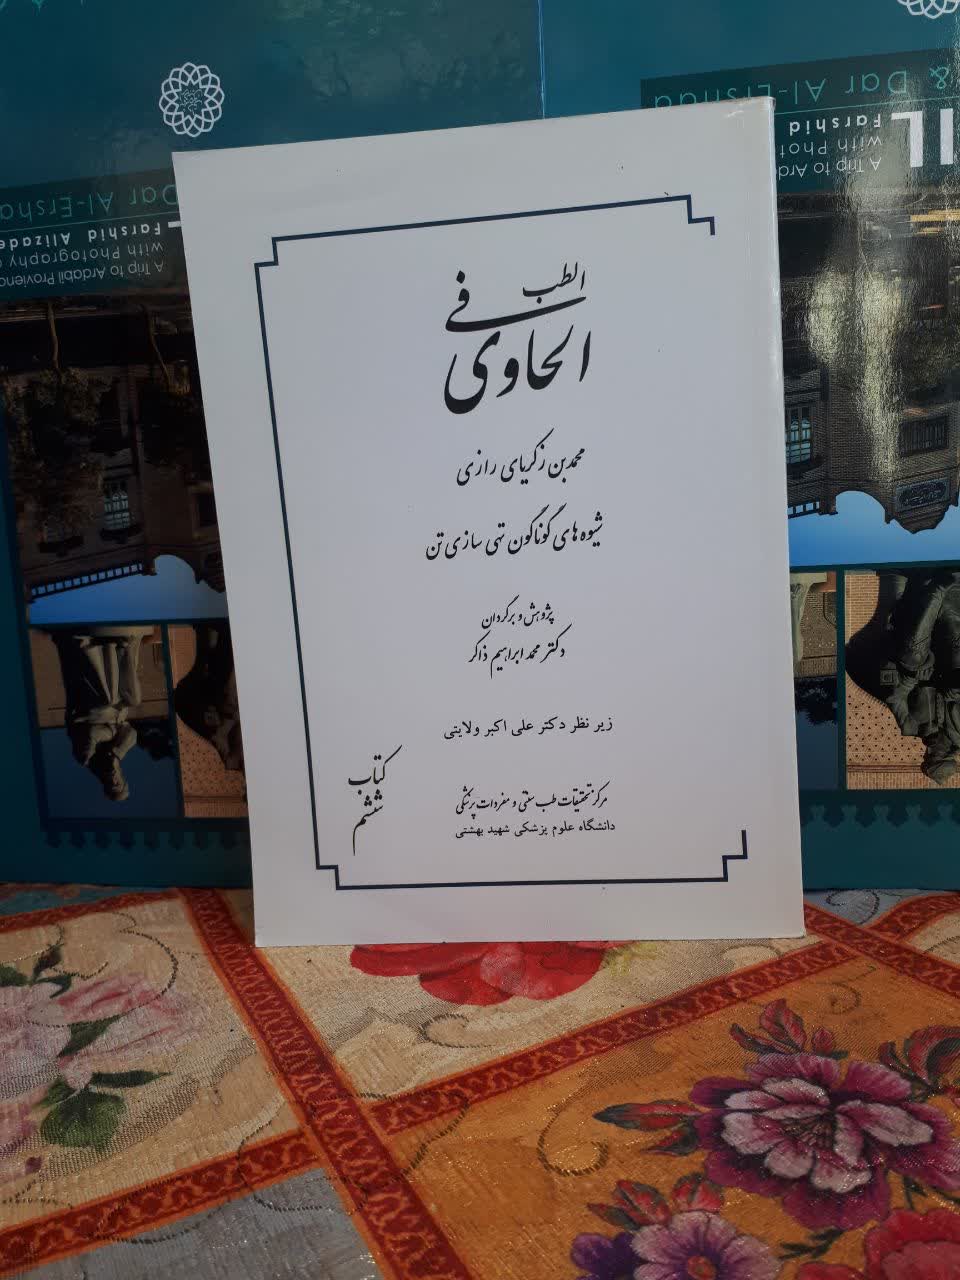 الحاوی
فی
الطب
محمد بن زکریای رازی
شیوه های گوناگون تهی سازی تن
پژوهش و برگردان
دکتر محمد ابراهیم ذاکر
زیر نظر دکتر علی اکبر ولایتی
کتاب
ششم
مرکز تحقیقات طب سنتی و مفردات پزشکی
دانشگاه علوم پزشکی شهید بهشتی
& Dar Al-Ershad
IL
Farshid
with Phot
A Trip to Arda
Dar Al-Ersha
Farshid Alizade
with Photography
A Trip to Ardabil Provienc